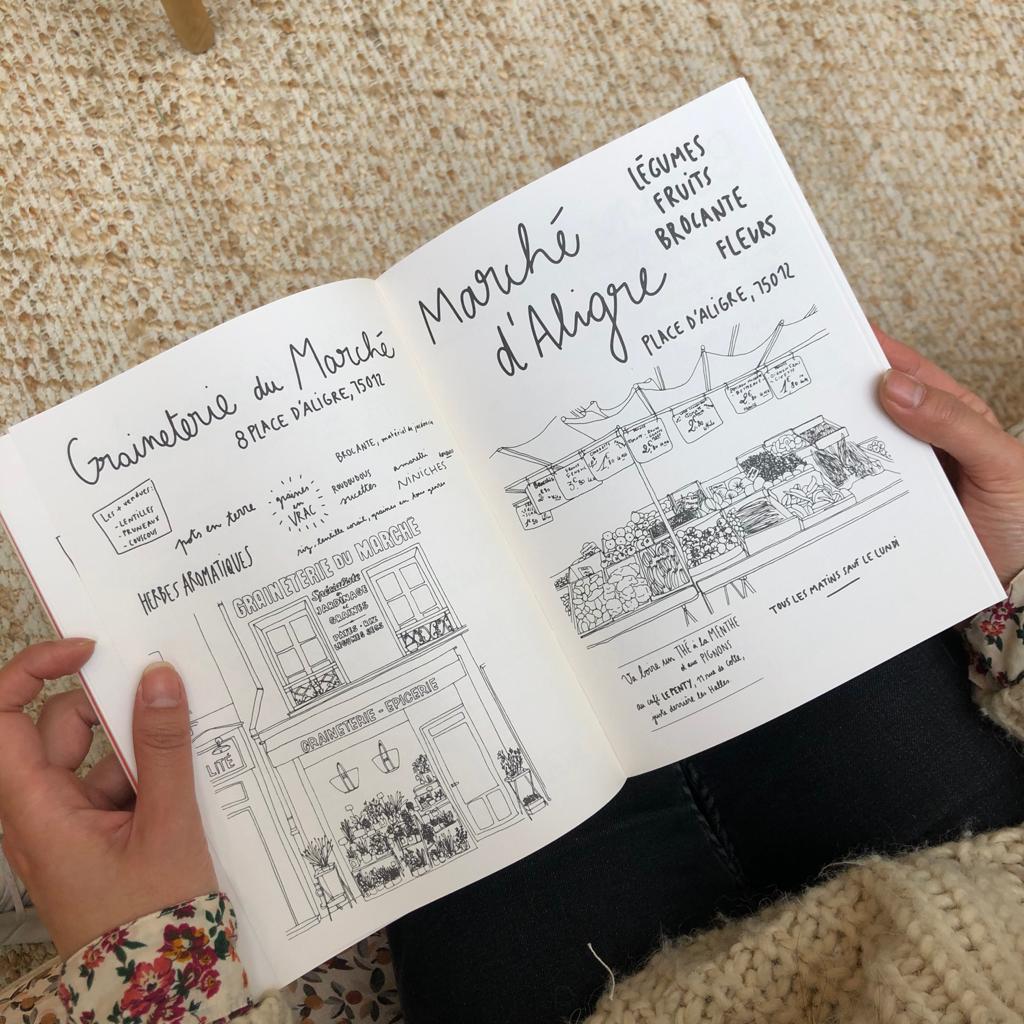 Graineterie du Marché
8 PLACE D'ALIGRE, 75012
Les + vendues:
- LENTILLES
- PRUNEAUX
- COUSCOUS
pots en terre
graines
en
VRAC
BROCANTE, matériel de
ROUDOUDOUS
sucettes
amaretti
NINICHES
riz, lentille corail, graines en tous genres
HERBES AROMATIQUES
GRAINETERIE DU MARCHE
Spécialiste
JARDINAGE
GRAINES
PÂTES - RIZ
LEGUMES SECS
GRAINETERIE - EPICERIE
LITÉ
Marché
d'Aligre
LÉGUMES
FRUITS
BROCANTE
FLEURS
PLACE D'ALIGRE, 75012
TOUS LES MATINS SAUF LE LUNDI
Va boire un THÉ à la MENTHE
et aux PIGNONS
au café LE PENTY, 11 rue de Cotte,
juste derrière les Halles.